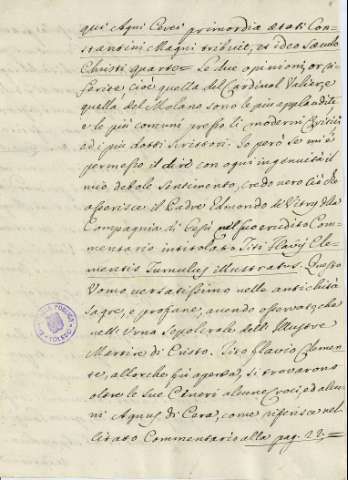 qui Agni Cerei primordia ætati Con-
stantini Magni tribuit, et ideo Sæculo
Christi quarto= Le due opinioni or ri-
ferite, cioè quella del Cardinal Valier, e
quella del Molano sono le più applaudite
e le più comuni presso li moderni Critici
ed i più dotti Scrittori. Io però se mi è
permesso il dire con ogni ingenuità il
mio debole Sentimento, credo vero ciò che
asserisce il Padre Eduardo de Vitry della
Compagnia di Gesù nel suo erudito Com-
mentario intitolato Titi Flavij Cle-
mentis Tumulus illustratus. Questo
Uomo versatissimo nelle antichità
sagre, e profane, avendo osservato, che
nell'Urna Sepolcrale dell'Illustre
Martire di Cristo Tito Flavio Clemen-
te, allorche fù aperta, si trovarono
oltre le sue Ceneri alcune voci, ed alcu-
ni Agnus di Cera, come riferisce nel
citato Commentario alla pag. 22.=
TOLEDO